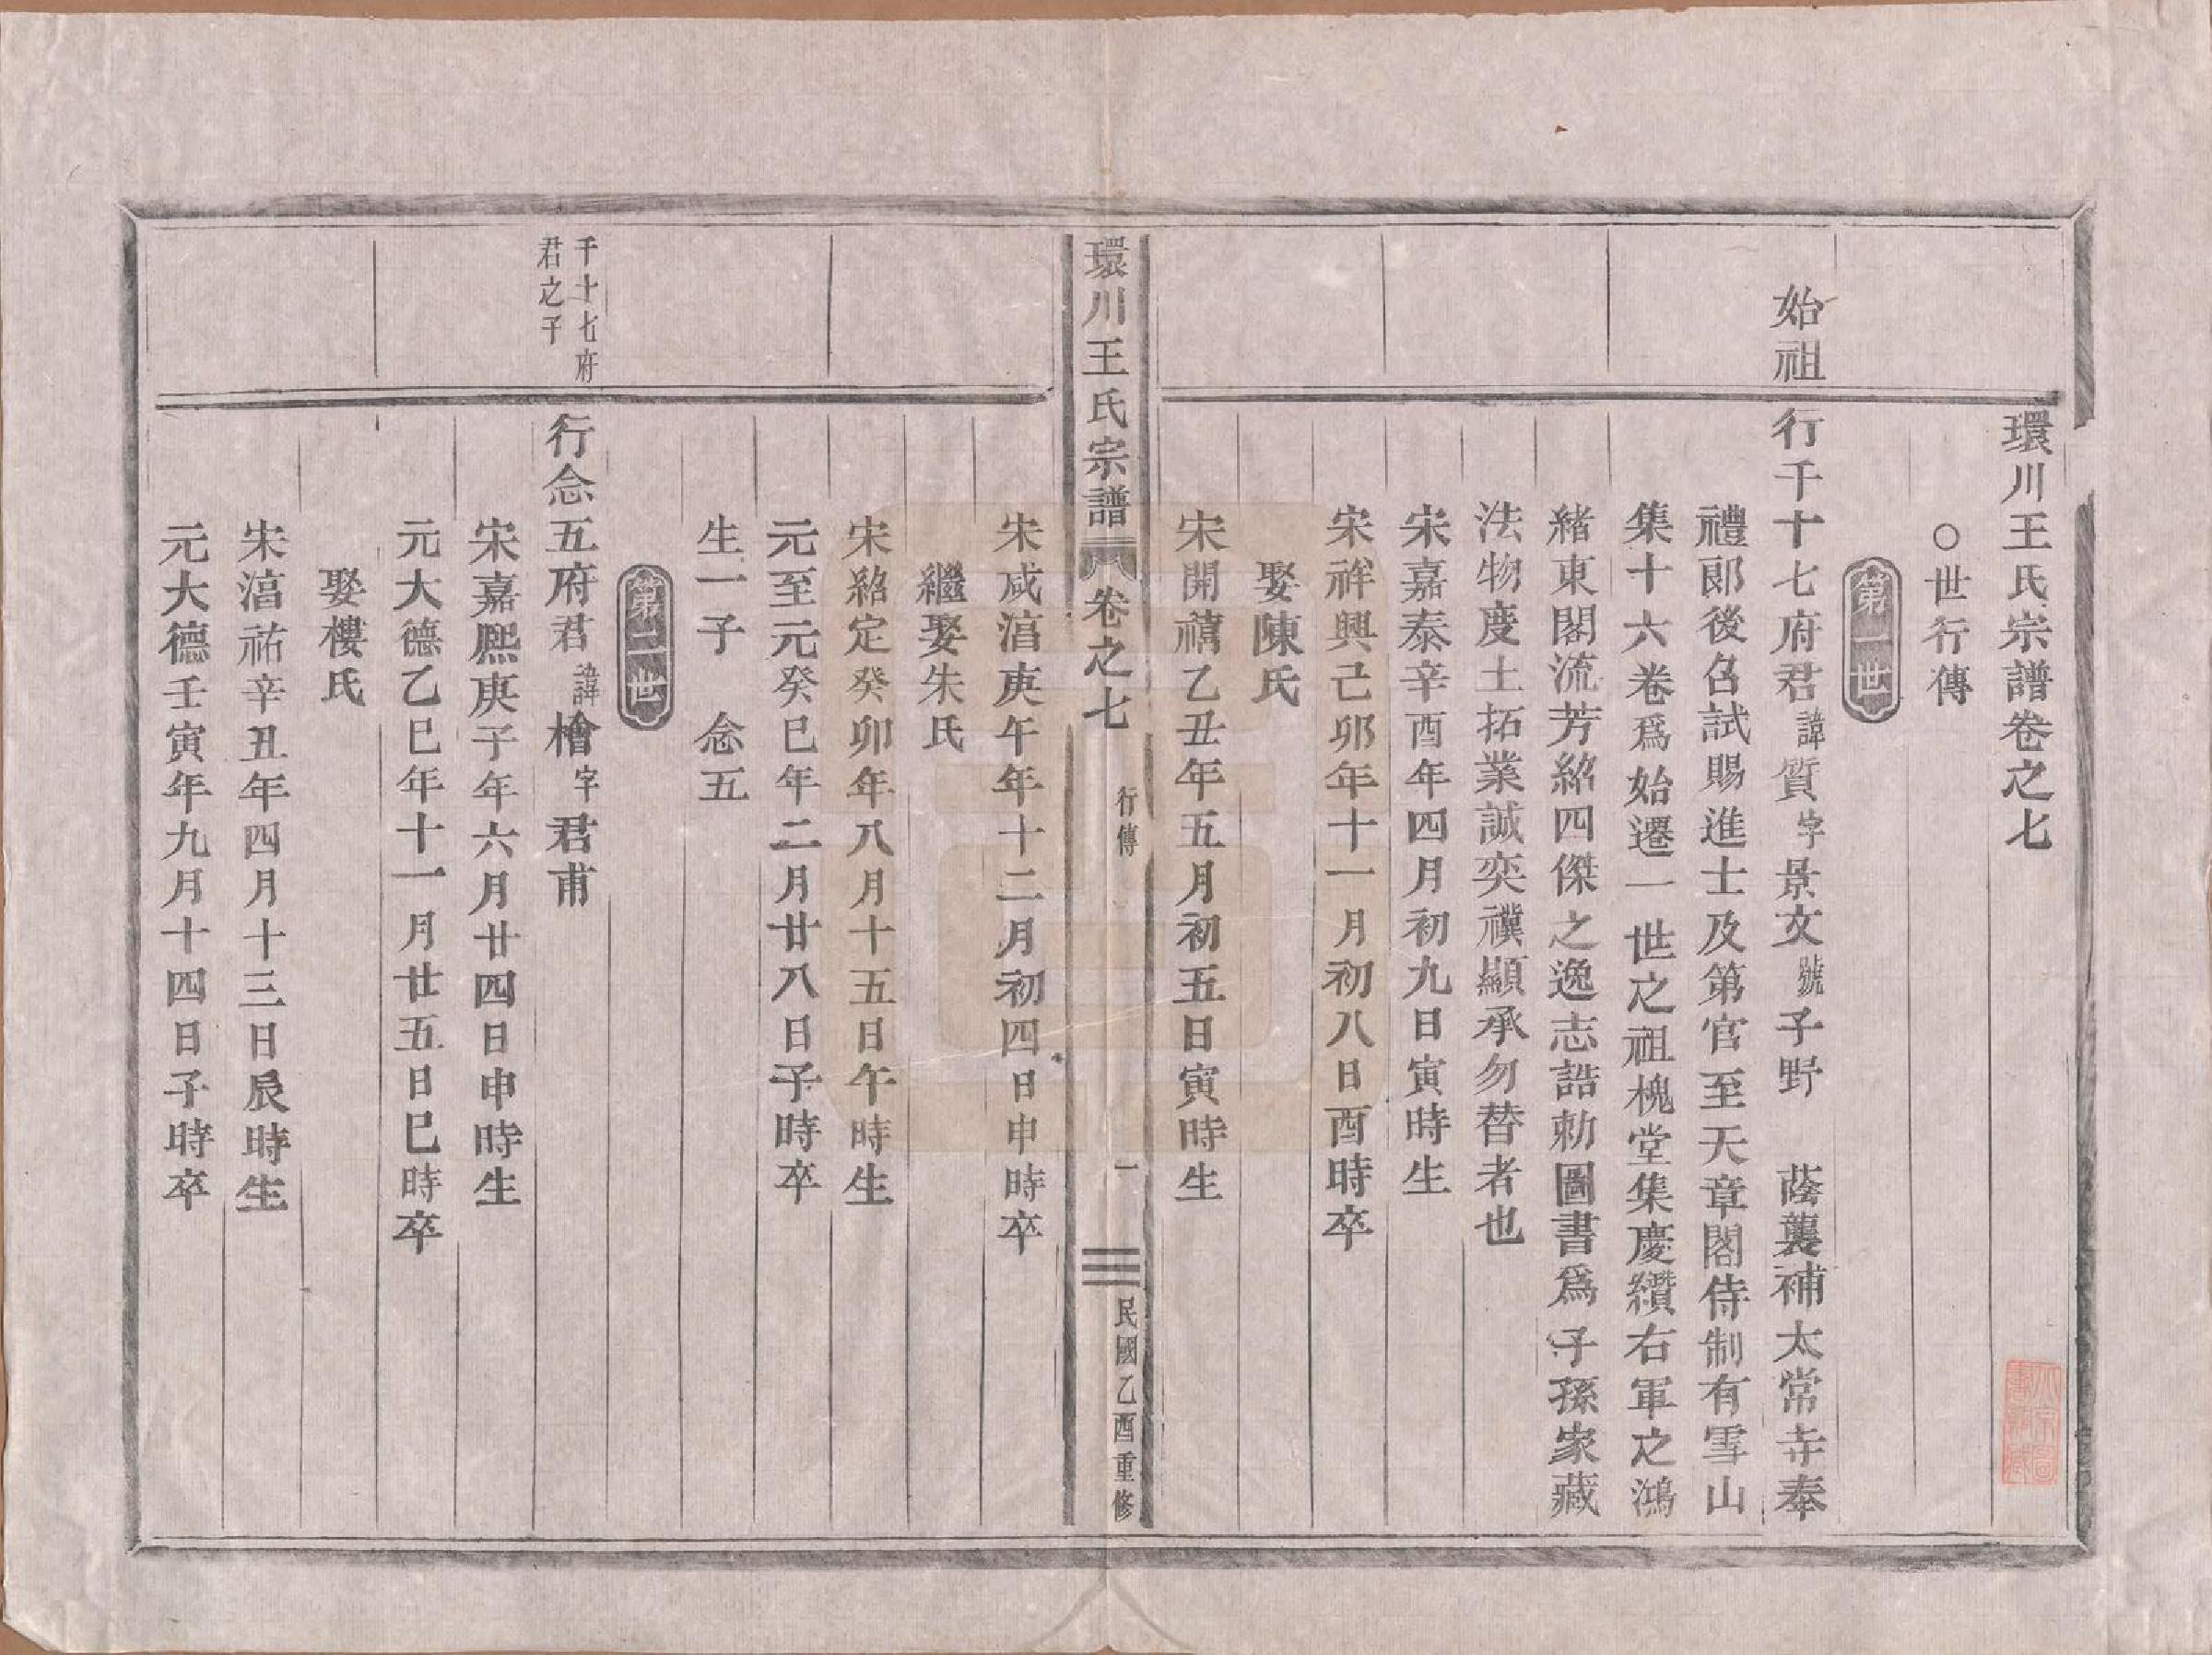 環川王氏宗譜卷之七
○世行傳
第一世
始祖
行千十七府君諱質字景文號子野　蔭襲補太常寺奉
禮郎後召試賜進士及第官至天章閣侍制有雪山
集十六卷爲始遷一世之祖槐堂集慶纘右軍之鴻
緒東閣流芳紹四傑之逸志誥勅圖書爲子孫家藏
法物度土拓業誠奕禩顯承勿替者也
宋嘉泰辛酉年四月初九日寅時生
宋祥興己卯年十一月初八日酉時卒
娶陳氏
宋開禧乙丑年五月初五日寅時生
環川王氏宗譜
卷之七
行傳
一
民國乙酉重修
宋咸湻庚午年十二月初四日申時卒
繼娶朱氏
宋紹定癸卯年八月十五日午時生
元至元癸巳年二月廿八日子時卒
生一子　念五
第二世
千十七府
君之子
行念五府君諱檜字君甫
宋嘉熙庚子年六月廿四日申時生
元大德乙巳年十一月廿五日巳時卒
娶樓氏
宋湻祐辛丑年四月十三日辰時生
元大德壬寅年九月十四日子時卒